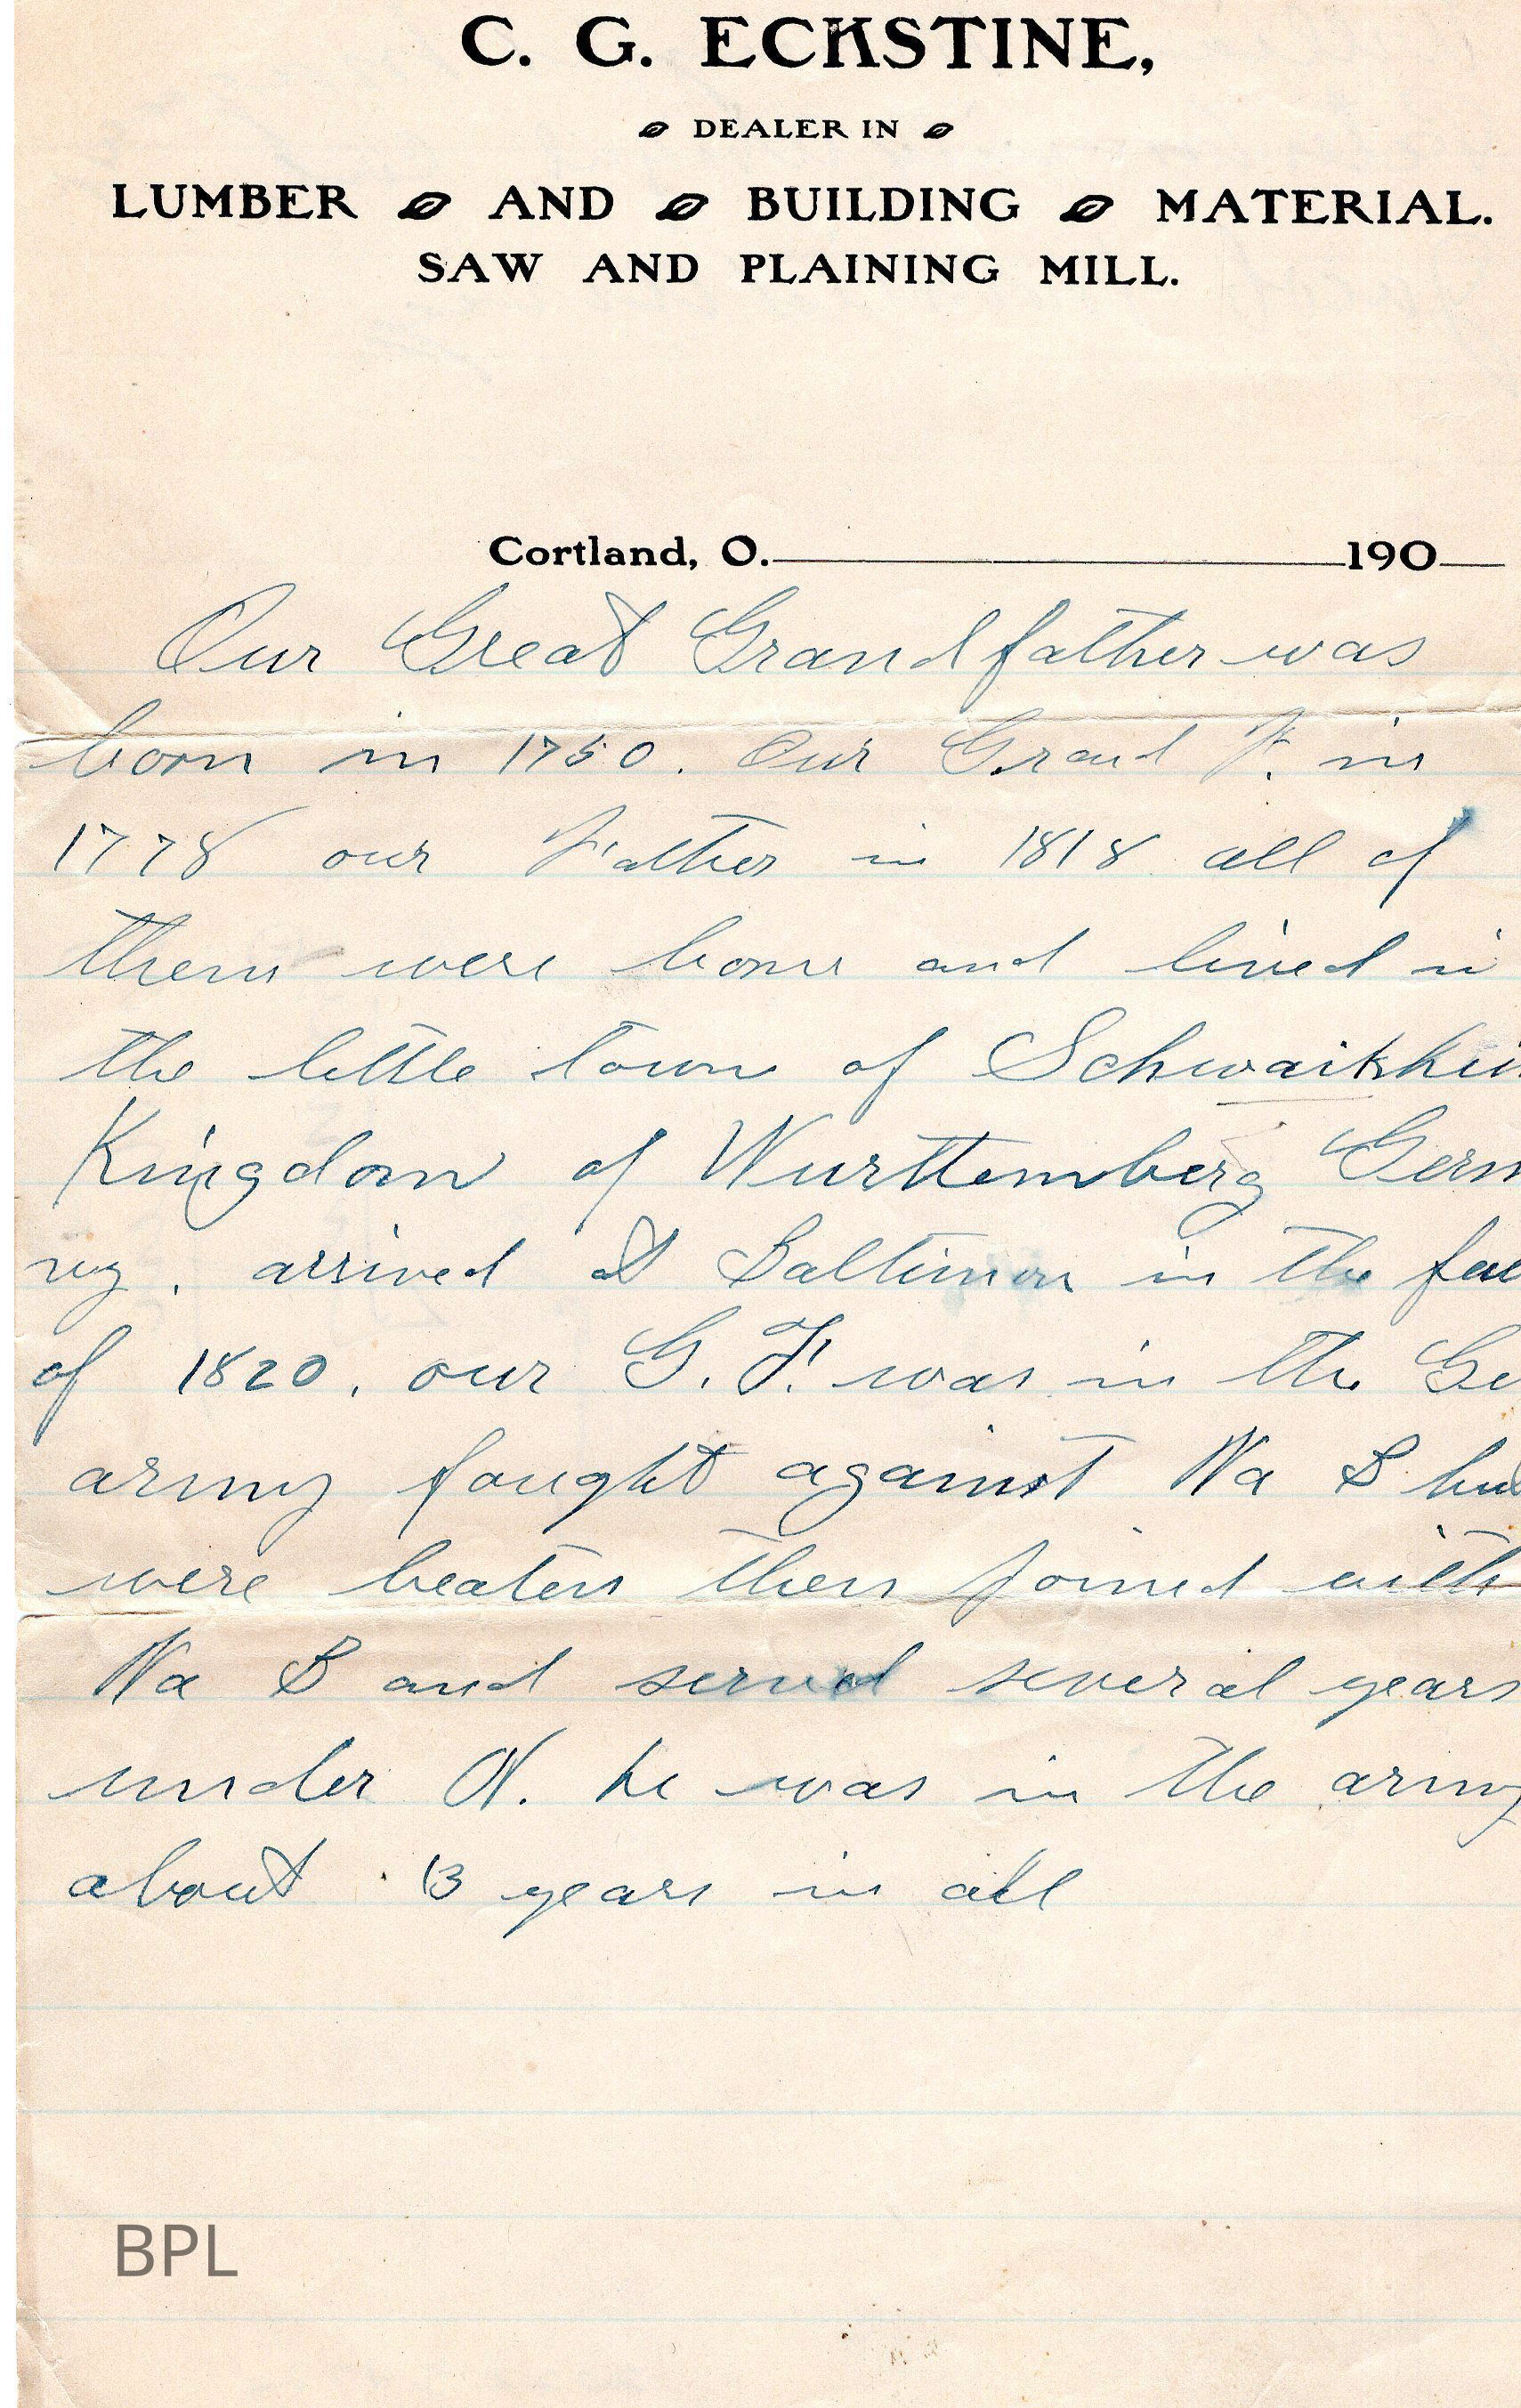 C. G. ECKSTINE,
DEALER IN
LUMBER AND BUILDING MATERIAL.
SAW AND PLAINING MILL.
Cortland, O. 190
Our Great Grandfather was
born in 1750. Our Grand F. in
1778 our Father in 1818 all of
them were born and lived in
the little town of Schwaikhei
Kingdom of Wurttemberg Germ
ny. arrived at Baltimore in the fall
of 1820. our G. F. was in the Ge
army fought against Na B but
were beaten then joined with
Na B and served several years
under N. he was in the army
about 13 years in all
BPL